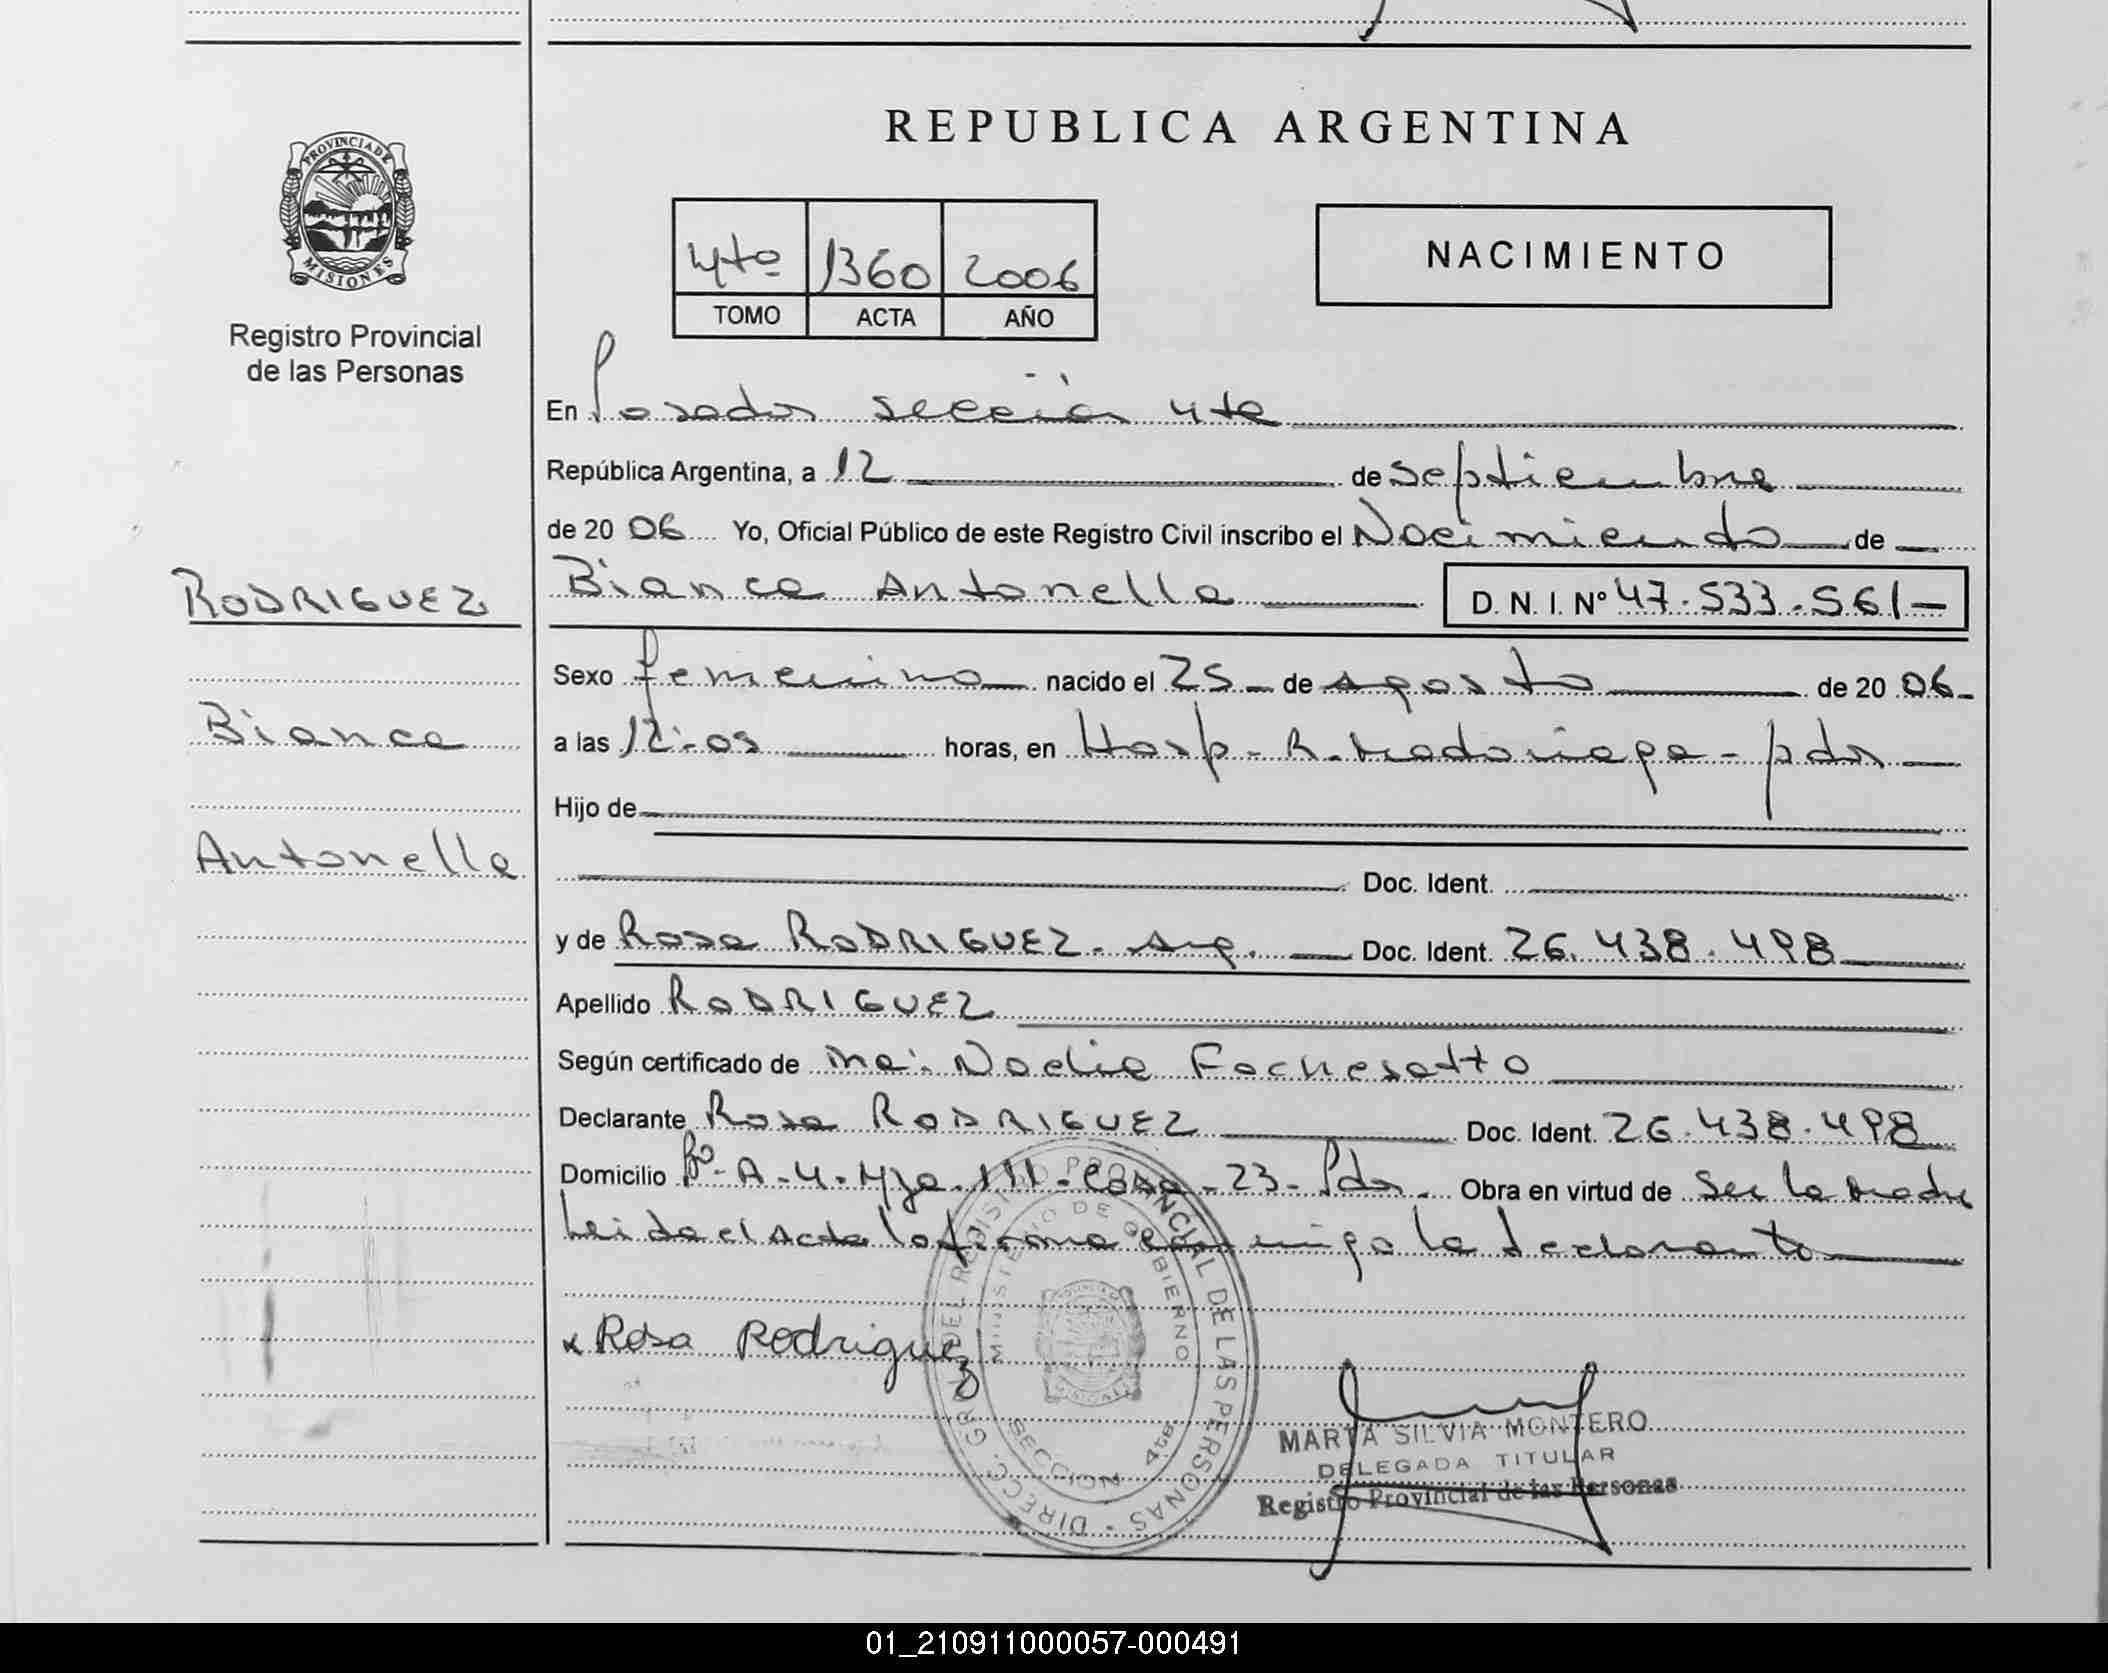 REPUBLICA ARGENTINA
PROVINCIA DE
MISIONES
Registro Provincial
de las Personas
4to 1360 2006
TOMO ACTA AÑO
NACIMIENTO
En Posadas sección 4ta
República Argentina, a 12 de septiembre
de 20 06 Yo, Oficial Público de este Registro Civil inscribo el Nacimiento de
RODRIGUEZ
Bianca
Antonella
Bianca Antonella D. N. I. Nº 47.533.561
Sexo femenino nacido el 25 de agosto de 20 06
a las 12:05 horas, en Hosp - R. Madariaga - pdas
Hijo de
Doc. Ident.
y de Rosa RODRIGUEZ - arg. Doc. Ident. 26.438.498
Apellido RODRIGUEZ
Según certificado de Ma: Noelia Fochesatto
Declarante Rosa RODRIGUEZ Doc. Ident. 26.438.498
Domicilio Bº - A-4 - Mza. III - Casa - 23 - Pdas. Obra en virtud de ser la madre
Leida el acta la firma conmigo la declarante
x Rosa Rodriguez
DIRECC. GRAL DEL REGISTRO PROVINCIAL DE LAS PERSONAS
MINISTERIO DE GOBIERNO
SECCION 4ta
MARTA SILVIA MONTERO
DELEGADA TITULAR
Registro Provincial de las Personas
01_210911000057-000491